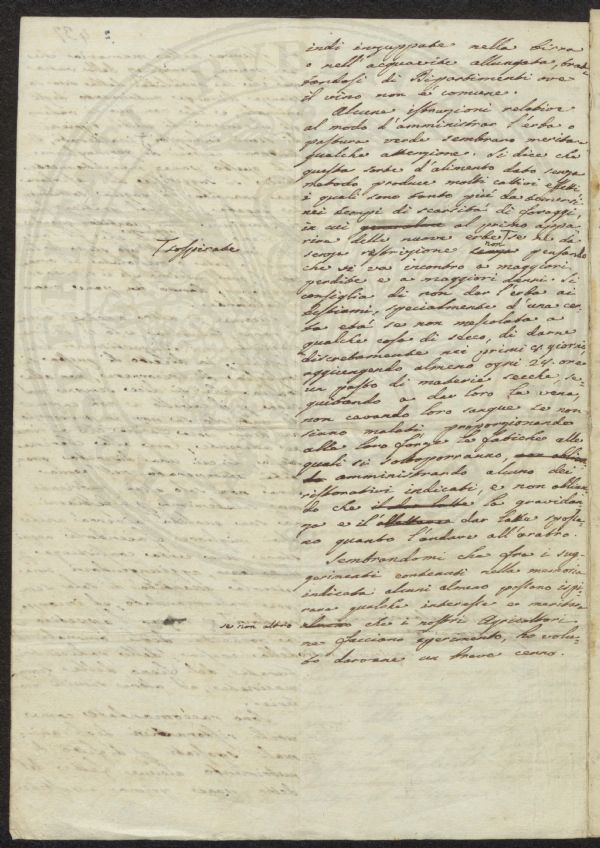 indi inzuppate nella birra
o nell'acquavite allungata, trat-
tandosi di Dipartimenti ove
il vino non è comune.
Alcune istruzioni relative
al modo d'amministrar l'erba o
pastura verde sembrano meritar
qualche attenzione. Si dice che
questa sorte d'alimento dato senza
metodo produce molti cattivi effetti
i quali sono tanto più da temersi
nei tempi di scarsità di foraggi,
in cui al primo appa-
rire delle nuove erbe se ne dà
senza restrizione non pensando
che si va incontro a maggiori
perdite e a maggiori danni. Si
consiglia di non dar l'erba ai
bestiami, specialmente d'una cer-
ta età se non mescolata a
qualche cosa di secco, di darne
discretamente nei primi 15 giorni,
aggiungendo almeno ogni 24 ore
un pasto di materie secche, se-
guitando a dar loro la vena,
non cavando loro sangue se non
siano malati, proporzionando
alla loro forza le fatiche alle
quali si sottoporranno,
amministrando alcuno dei
ristorativi indicati, e non oblian-
do che la gravidan-
za e il dar latte sposta-
no quanto l'andare all'aratro.
Sembrandomi che fra i sug-
gerimenti contenuti nella memoria
indicata alcuni almeno possano ispi-
rare qualche interesse e meritare
se non altro che i nostri Agricoltori
ne facciano esperimento, ho volu-
to darvene un breve cenno.